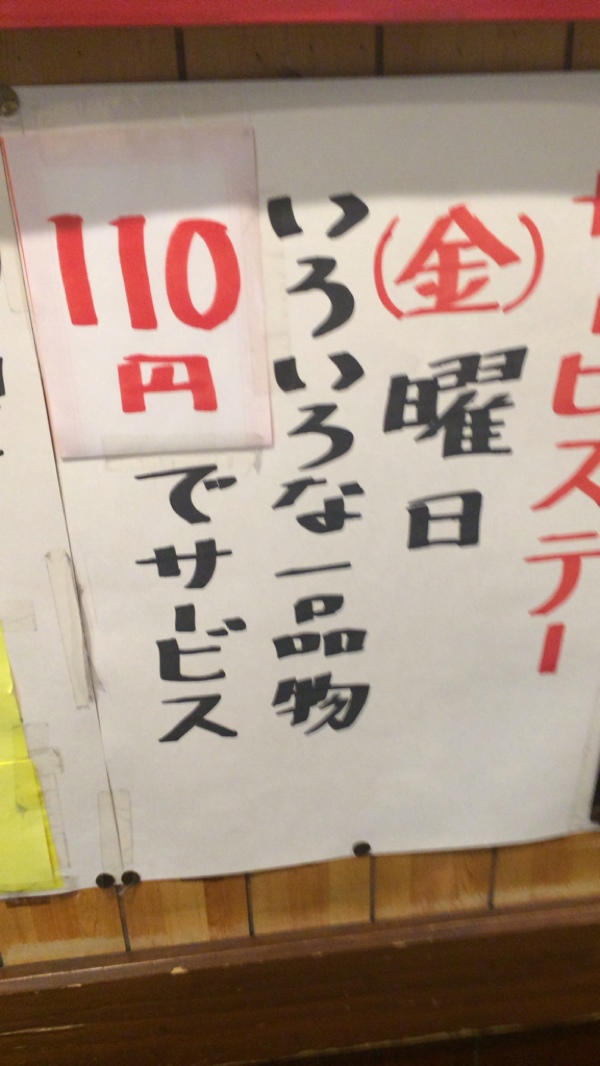 サービスデー
(金)曜日
いろいろな一品物
110円でサービス